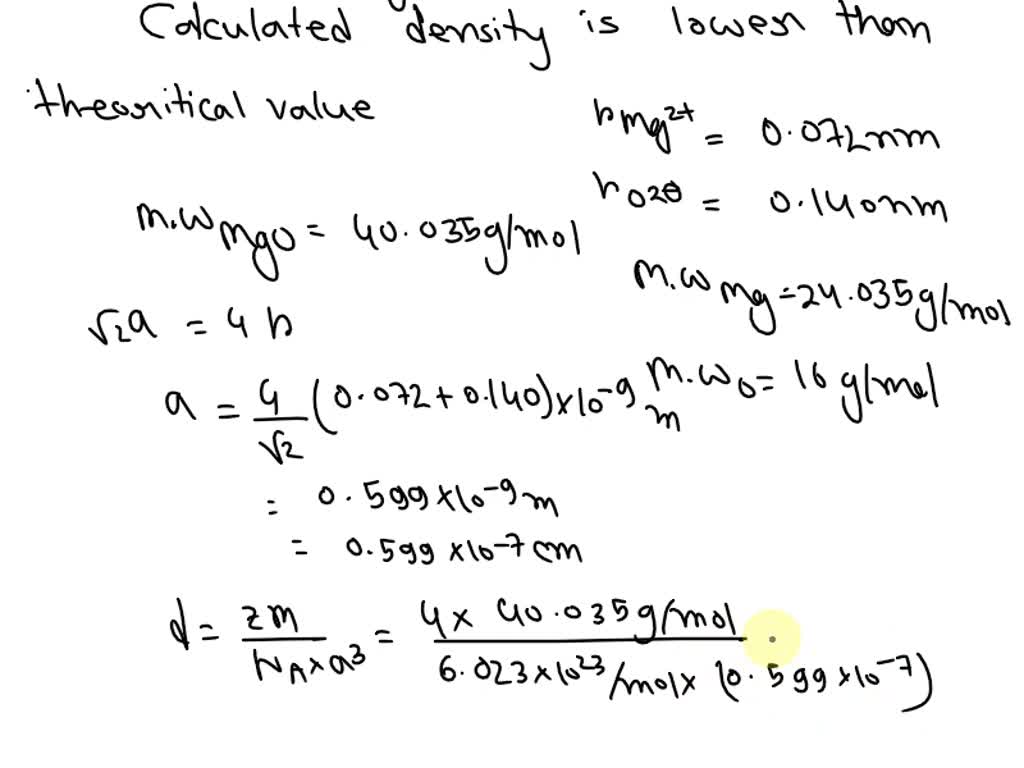 Calculated density is lowest than
theoritical value
r Mg²⁺ = 0.072nm
r O2⊖ = 0.140nm
m.w MgO = 40.035g/mol
m.w Mg = 24.035g/mol
√2a = 4r
m.w O = 16 g/mol
a = 4/√2 (0.072 + 0.140) × 10⁻⁹ m
= 0.599 × 10⁻⁹ m
= 0.599 × 10⁻⁷ cm
d = zM / N_A × a³ = 4 × 40.035 g/mol / 6.023 × 10²³ /mol × (0.599 × 10⁻⁷)